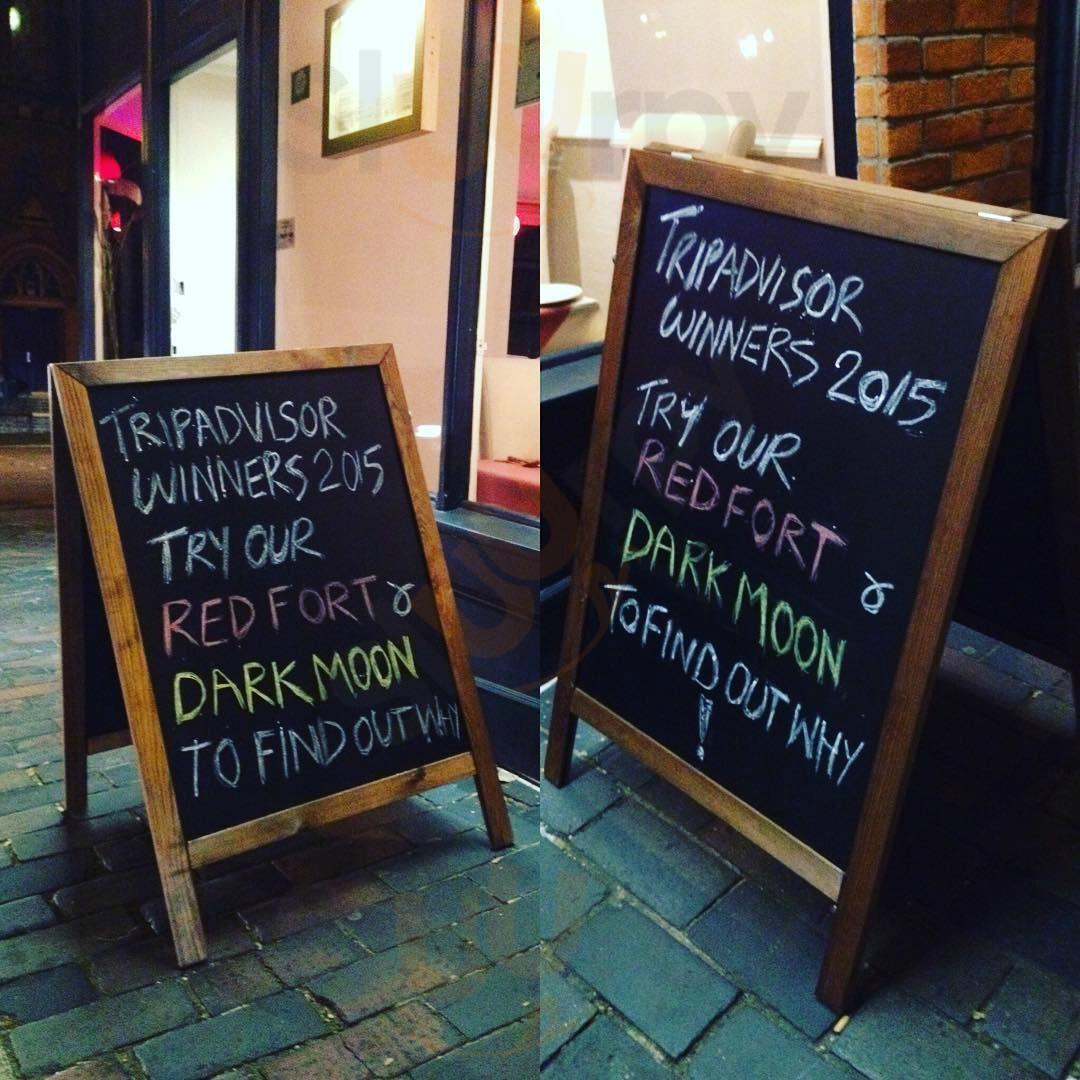 TRIPADVISOR
WINNERS 2015
TRY OUR
RED FORT &
DARK MOON
TO FIND OUT WHY
TRIPADVISOR
WINNERS 2015
TRY OUR
RED FORT
DARK MOON &
TO FIND OUT WHY
!